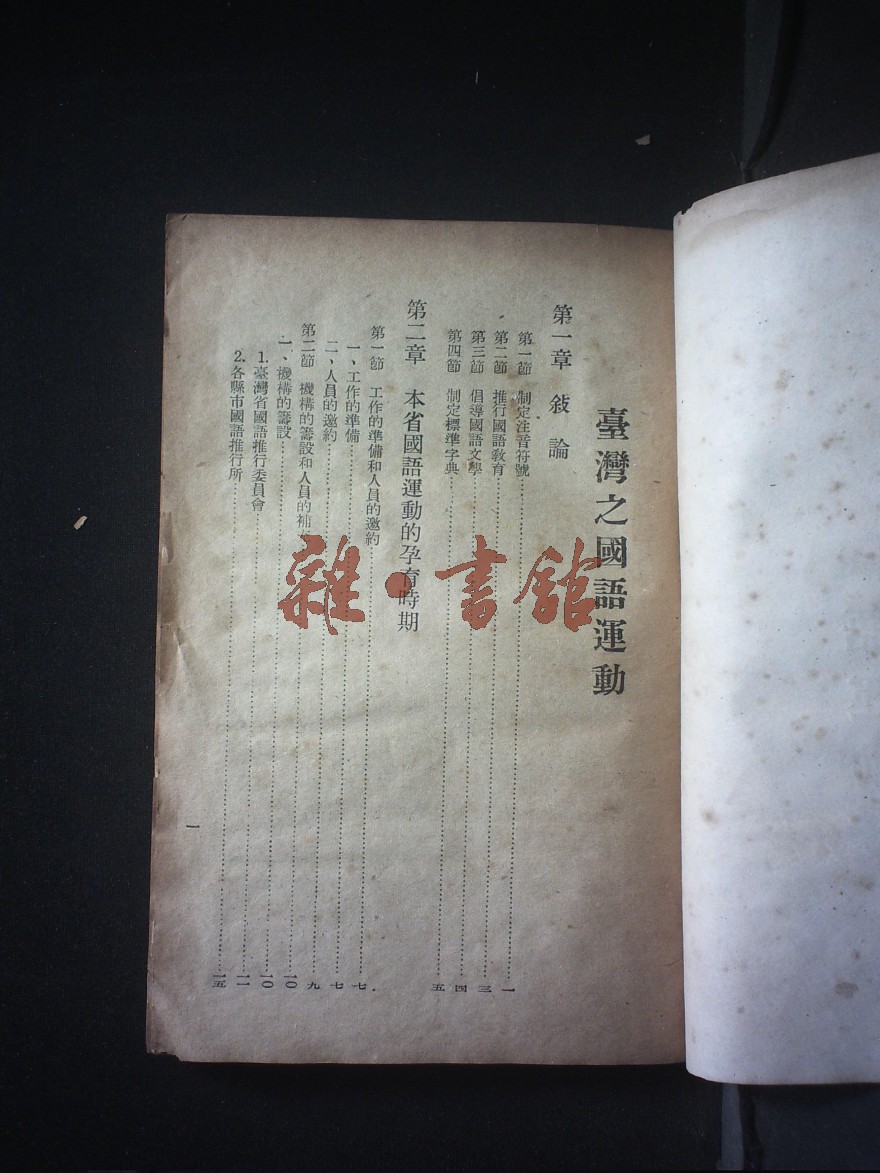 臺灣之國語運動
第一章 敍論
第一節 制定注音符號 一
第二節 推行國語敎育 三
第三節 倡導國語文學 四
第四節 制定標準字典 五
第二章 本省國語運動的孕育時期
第一節 工作的準備和人員的邀約 七
一、工作的準備 七
二、人員的邀約 九
第二節 機構的籌設和人員的補 一〇
一、機構的籌設 一〇
1.臺灣省國語推行委員會 一一
2.各縣市國語推行所 一五
一
雜·書館